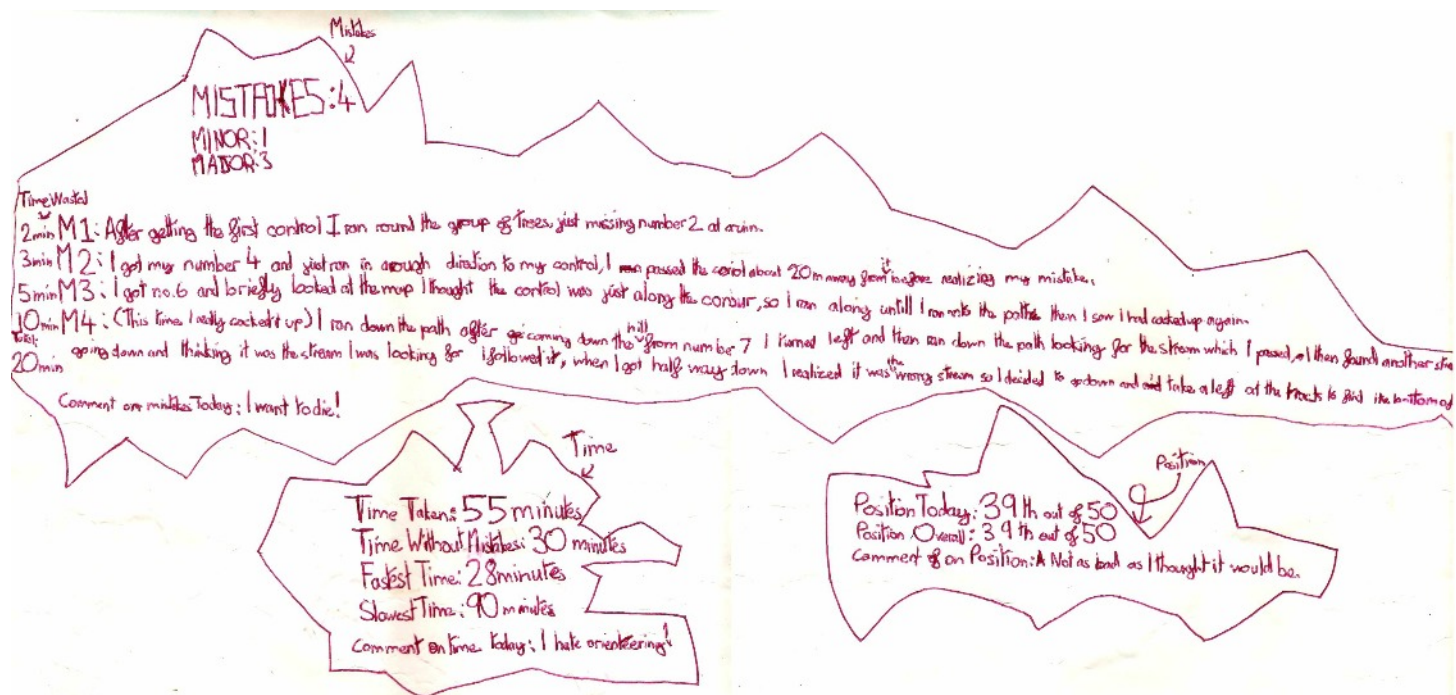 Mistakes
MISTAKES:4
MINOR:1
MAJOR:3
Time Wasted
2min M1: After getting the first control I ran round the group of trees, just missing number 2 at a ruin.
3min M2: I got my number 4 and just ran in a rough direction to my control, I passed the control about 20m away from it before realizing my mistake.
5min M3: I got no.6 and briefly looked at the map I thought the control was just along the contour, so I ran along untill I ran onto the paths then I saw I had cocked up again.
10min M4: (This time I really cocked it up) I ran down the path after coming down the hill from number 7 I turned left and then ran down the path looking for the stream which I passed, I then found another
Total:
20min going down and thinking it was the stream I was looking for I followed it, when I got half way down I realized it was the wrong stream so I decided to go down and take a left at the tracks to find the bottom of
Comment on mistakes Today: I want to die!
Time
Time Taken: 55 minutes
Time Without Mistakes: 30 minutes
Fastest Time: 28 minutes
Slowest Time: 90 minutes
Comment on time today: I hate orienteering!
Position
Position Today: 39th out of 50
Position Overall: 39th out of 50
Comment on Position: Not as bad as I thought it would be.